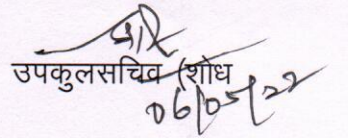 उपकुलसचिव (शोध
06/05/22